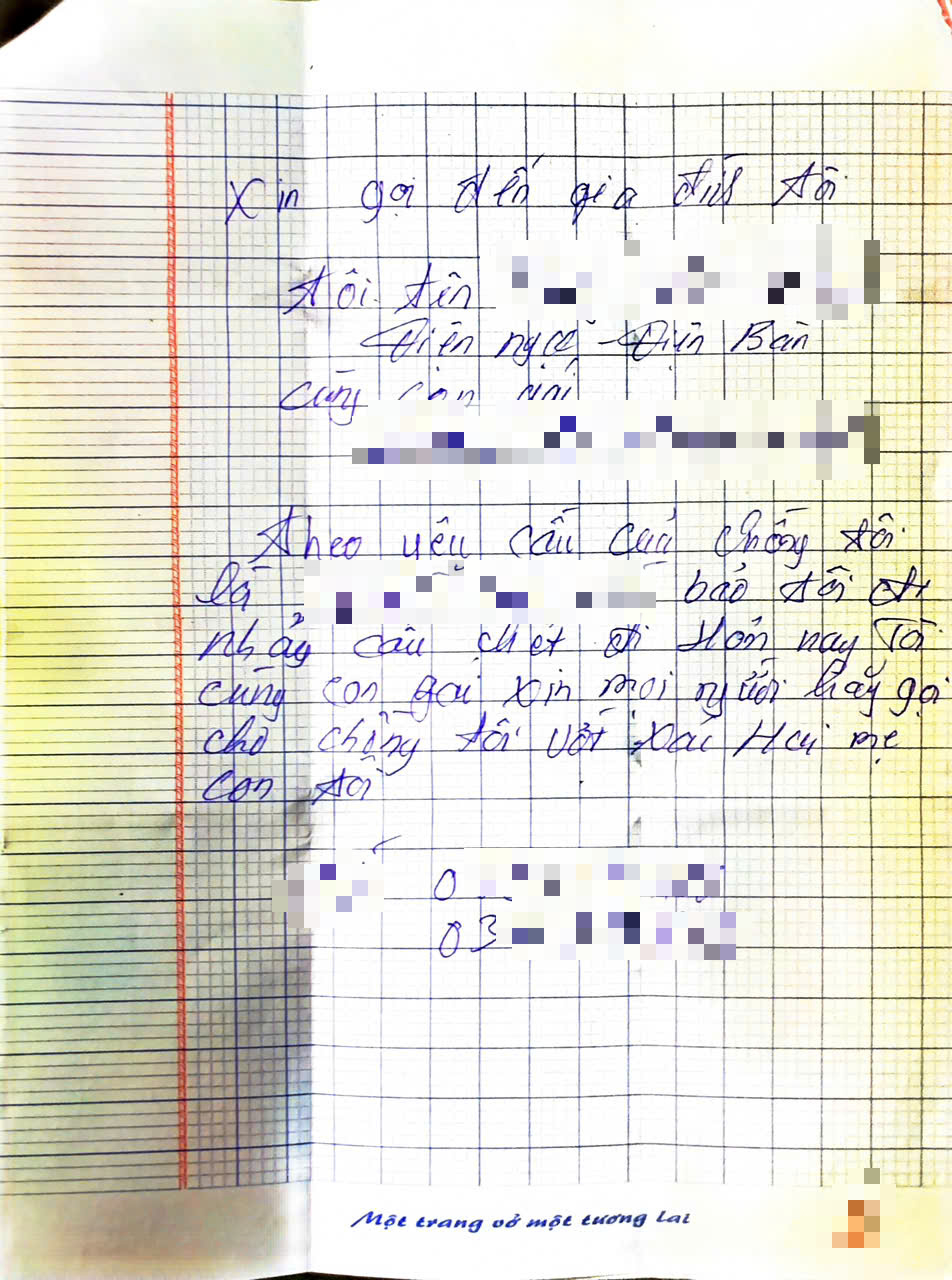 Xin gọi đến gia đình tôi
tôi tên
Điện ngọc - Điện Bàn
cùng con
Theo yêu cầu của chồng tôi
là bảo tôi đi
nhảy cầu chết đi Hôm nay Tôi
cùng con gái xin mọi người hãy gọi
cho chồng tôi vớt xác Hai mẹ
con tôi
0
03
Một trang vở một tương lai